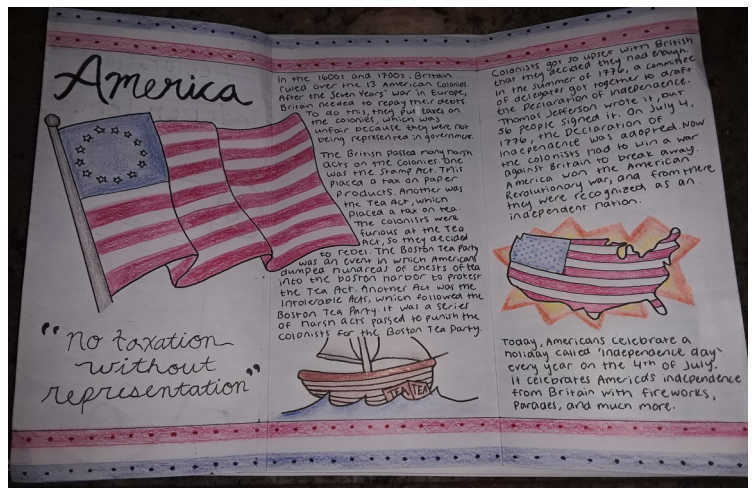 America
"no taxation
without
representation"
In the 1600s and 1700s, Britain
ruled over the 13 American Colonies.
After the Seven Years' War in Europe,
Britain needed to repay their debts.
To do this, they put taxes on
the colonies, which was
unfair because they were not
being represented in government.
The British passed many harsh
acts on the Colonies. One
was the Stamp Act. This
placed a tax on paper
products. Another was
the Tea Act, which
placed a tax on tea.
The colonists were
furious at the Tea
Act, so they decided
to rebel. The Boston Tea Party
was an event in which Americans
dumped hundreds of chests of tea
into the boston harbor to protest
the Tea Act. Another Act was the
Intolerable Acts, which followed the
Boston Tea Party. It was a series
of harsh acts passed to punish the
colonists for the Boston Tea Party.
TEA TEA
Colonists got so upset with British
that they decided they had enough.
In the summer of 1776, a committee
of delegates got together to draft
the Declaration of Independence.
Thomas Jefferson wrote it, but
56 people signed it. On July 4,
1776, the Declaration of
Independence was adopted. Now
the colonists had to win a war
against Britain to break away.
America won the American
Revolutionary war, and from there
they were recognized as an
independent nation.
Today, Americans celebrate a
holiday called 'Independence day'
every year on the 4th of July.
It celebrates America's independence
from Britain with fireworks,
parades, and much more.